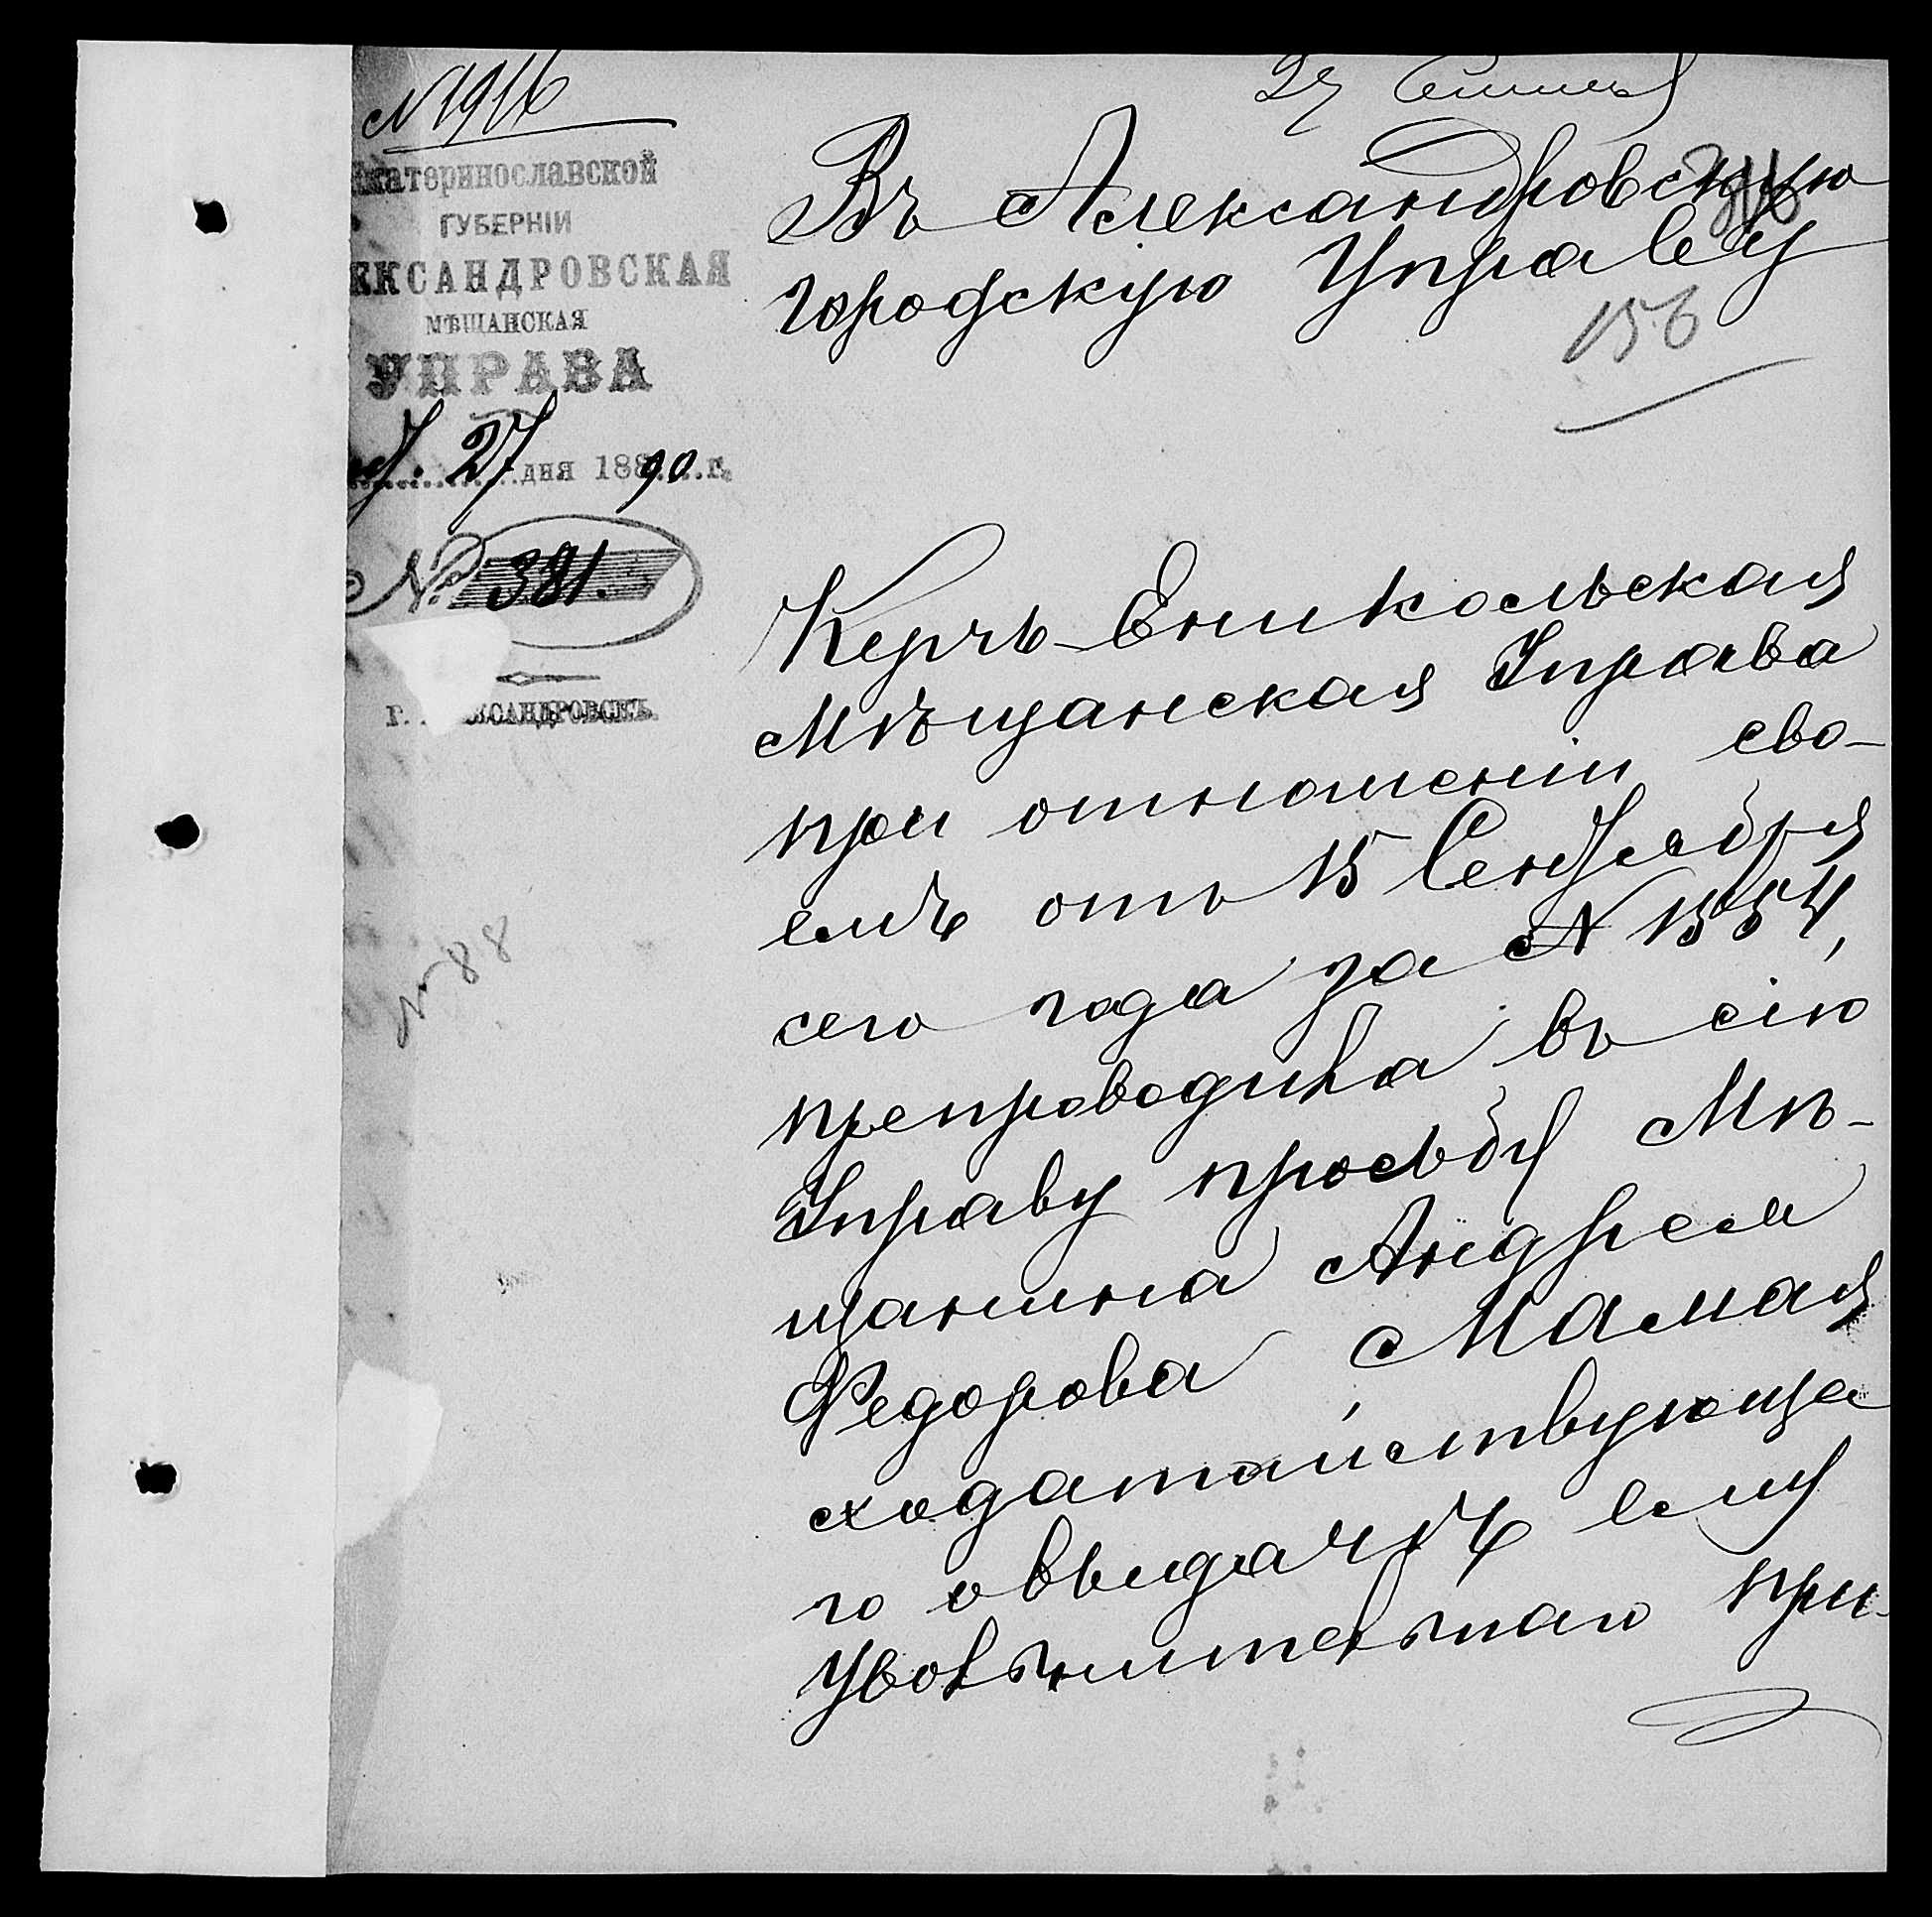 № 1916
27 Сентяб
Екатеринославской
ГУБЕРНІИ
АЛЕКСАНДРОВСКАЯ
МѢЩАНСКАЯ
УПРАВА
27 дня 1890 г.
№ 381.
г. АЛЕКСАНДРОВСКЪ.
№ 88
Въ Александровскую
городскую Управу
156
Керчь-Еникольская
Мѣщанская Управа
при отношеніи сво-
емъ отъ 15 Сентября
сего года за № 1554,
препроводила въ сію
Управу просьбу Мѣ-
щанина Андрея
Федорова Мамая
ходатайствующа
го о выдачѣ ему
увольнительнаго при-